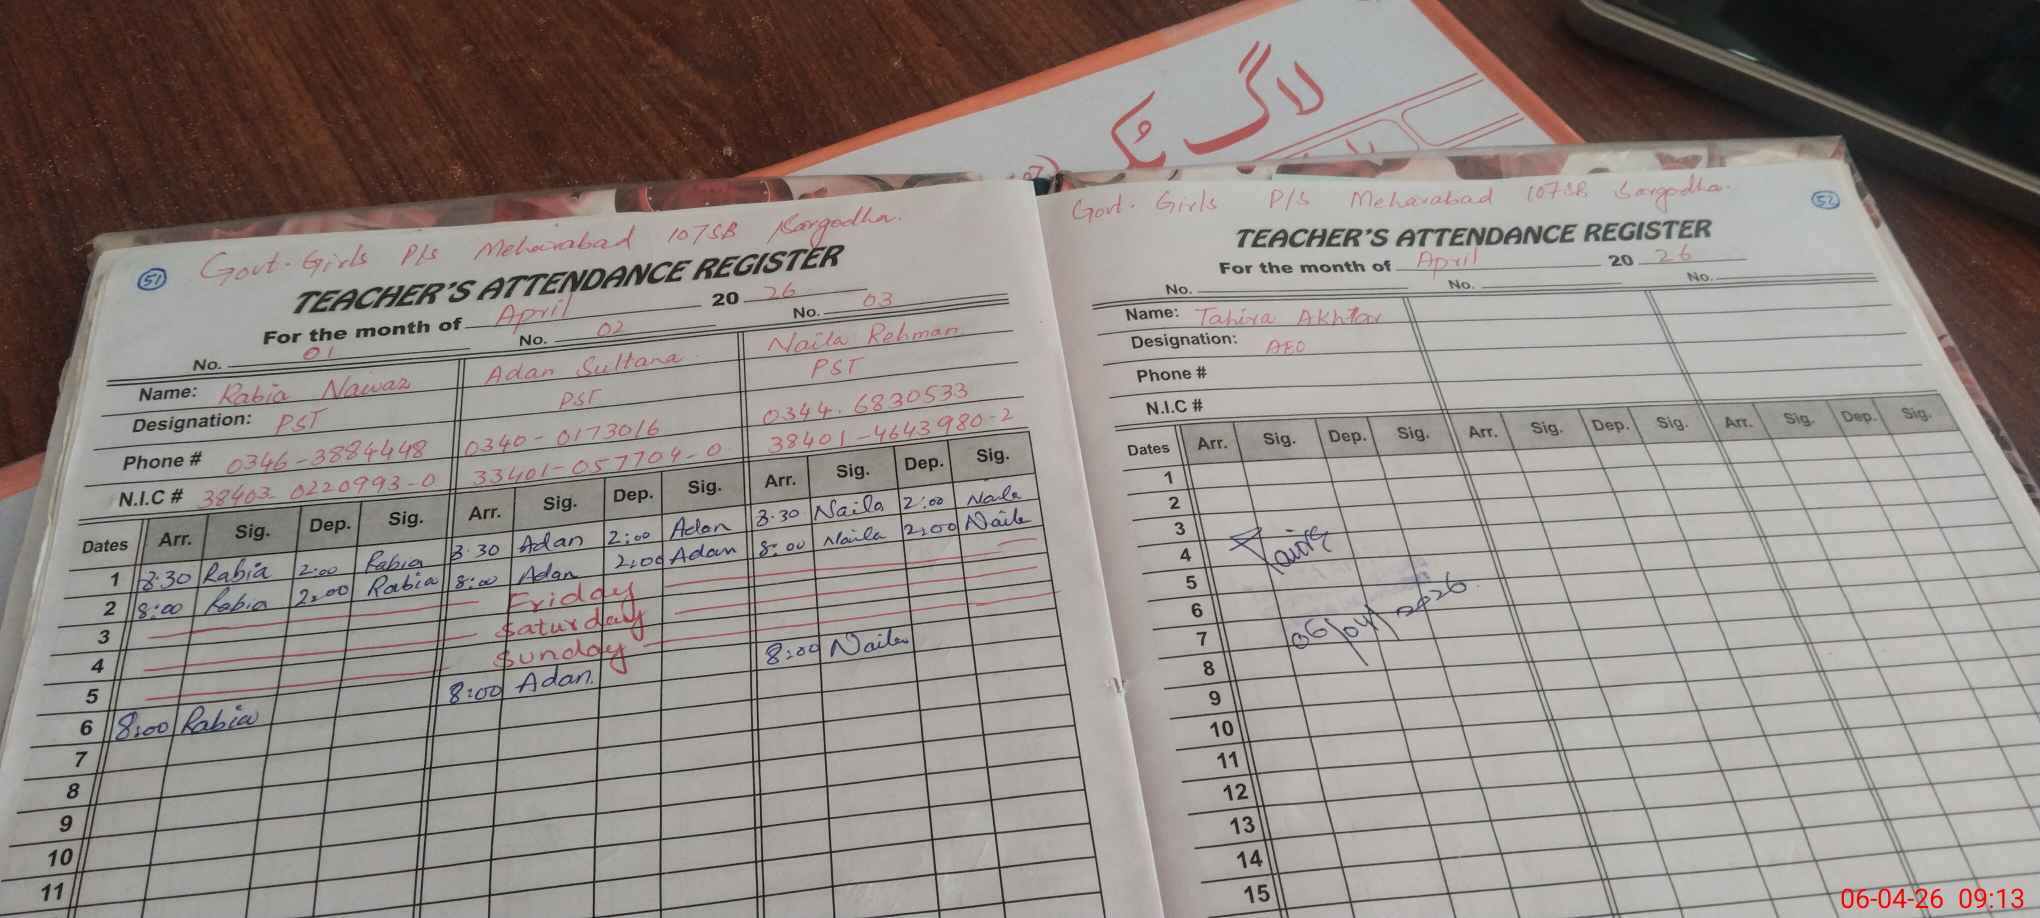 لاگ بک
51
Govt. Girls P/s Meharabad 107SB Sargodha.
TEACHER'S ATTENDANCE REGISTER
For the month of April 20 26
No. 01 No. 02 No. 03
Name: Rabia Nawaz Adan Sultana Naila Rehman
Designation: PST PST PST
Phone # 0346-3884448 0340-0173016 0344.6830533
N.I.C # 38403 0220993-0 33401-057704-0 38401-4643980-2
Dates Arr. Sig. Dep. Sig. Arr. Sig. Dep. Sig. Arr. Sig. Dep. Sig.
1 8:30 Rabia 2:00 Rabia 8.30 Adan 2:00 Adan 8.30 Naila 2:00 Naila
2 8:00 Rabia 2:00 Rabia 8:00 Adan 2:00 Adan 8:00 Naila 2:00 Naila
3 Friday
4 Saturday
5 Sunday
6 8:00 Rabia 8:00 Adan. 8:00 Naila
7
8
9
10
11
52
Govt. Girls P/S Meharabad 107SB Sargodha.
TEACHER'S ATTENDANCE REGISTER
For the month of April 20 26
No. No. No.
Name: Tahira Akhtar
Designation: AEO
Phone #
N.I.C #
Dates Arr. Sig. Dep. Sig. Arr. Sig. Dep. Sig. Arr. Sig. Dep. Sig.
1
2
3
4
5
6
7 06/04/2026
8
9
10
11
12
13
14
15
06-04-26 09:13